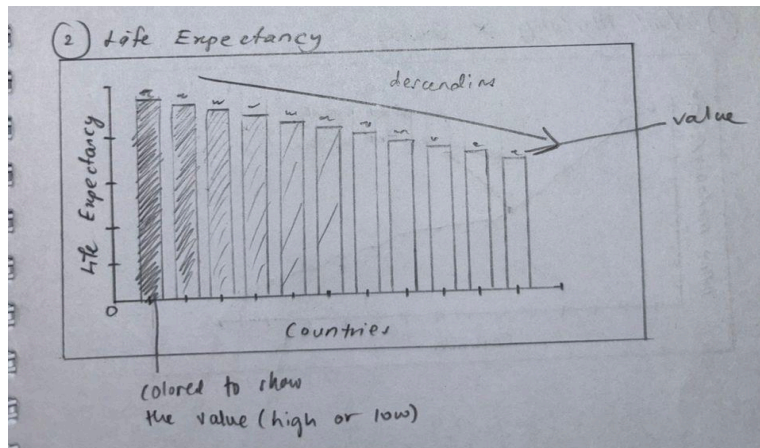 2 Life Expectancy
descending
value
Life Expectancy
0
Countries
colored to show
the value (high or low)